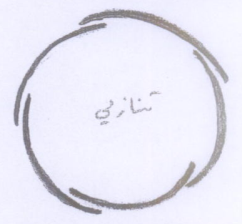 تنازلي